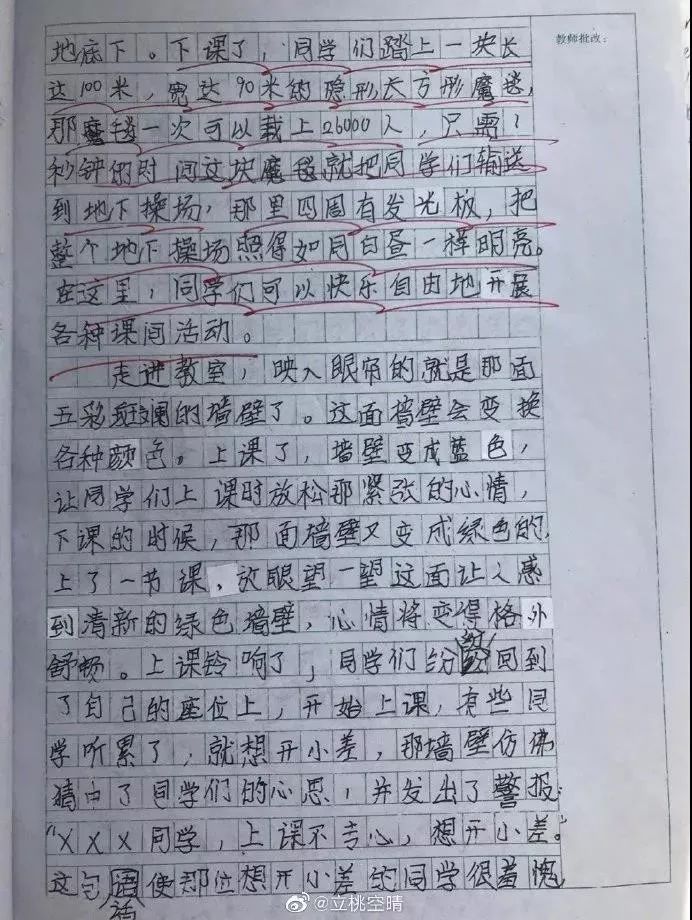 教师批改：
地底下。下课了，同学们踏上一块长
达100米，宽达90米的隐形长方形魔毯，
那魔毯一次可以载上26000人，只需1
秒钟的时间这块魔毯就把同学们输送
到地下操场，那里四周有发光板，把
整个地下操场照得如同白昼一样明亮。
在这里，同学们可以快乐自由地开展
各种课间活动。
走进教室，映入眼帘的就是那面
五彩斑斓的墙壁了。这面墙壁会变换
各种颜色。上课了，墙壁变成蓝色，
让同学们上课时放松那紧张的心情，
下课的时候，那面墙壁又变成绿色的，
上了一节课，放眼望一望这面让人感
到清新的绿色墙壁，心情将变得格外
舒顿。上课铃响了，同学们纷纷回到
了自己的座位上，开始上课，有些同
学听累了，就想开小差，那墙壁仿佛
猜中了同学们的心思，并发出了警报：
“XXX同学，上课不专心，想开小差。”
这句话使那位想开小差的同学很羞愧
@立桃空晴